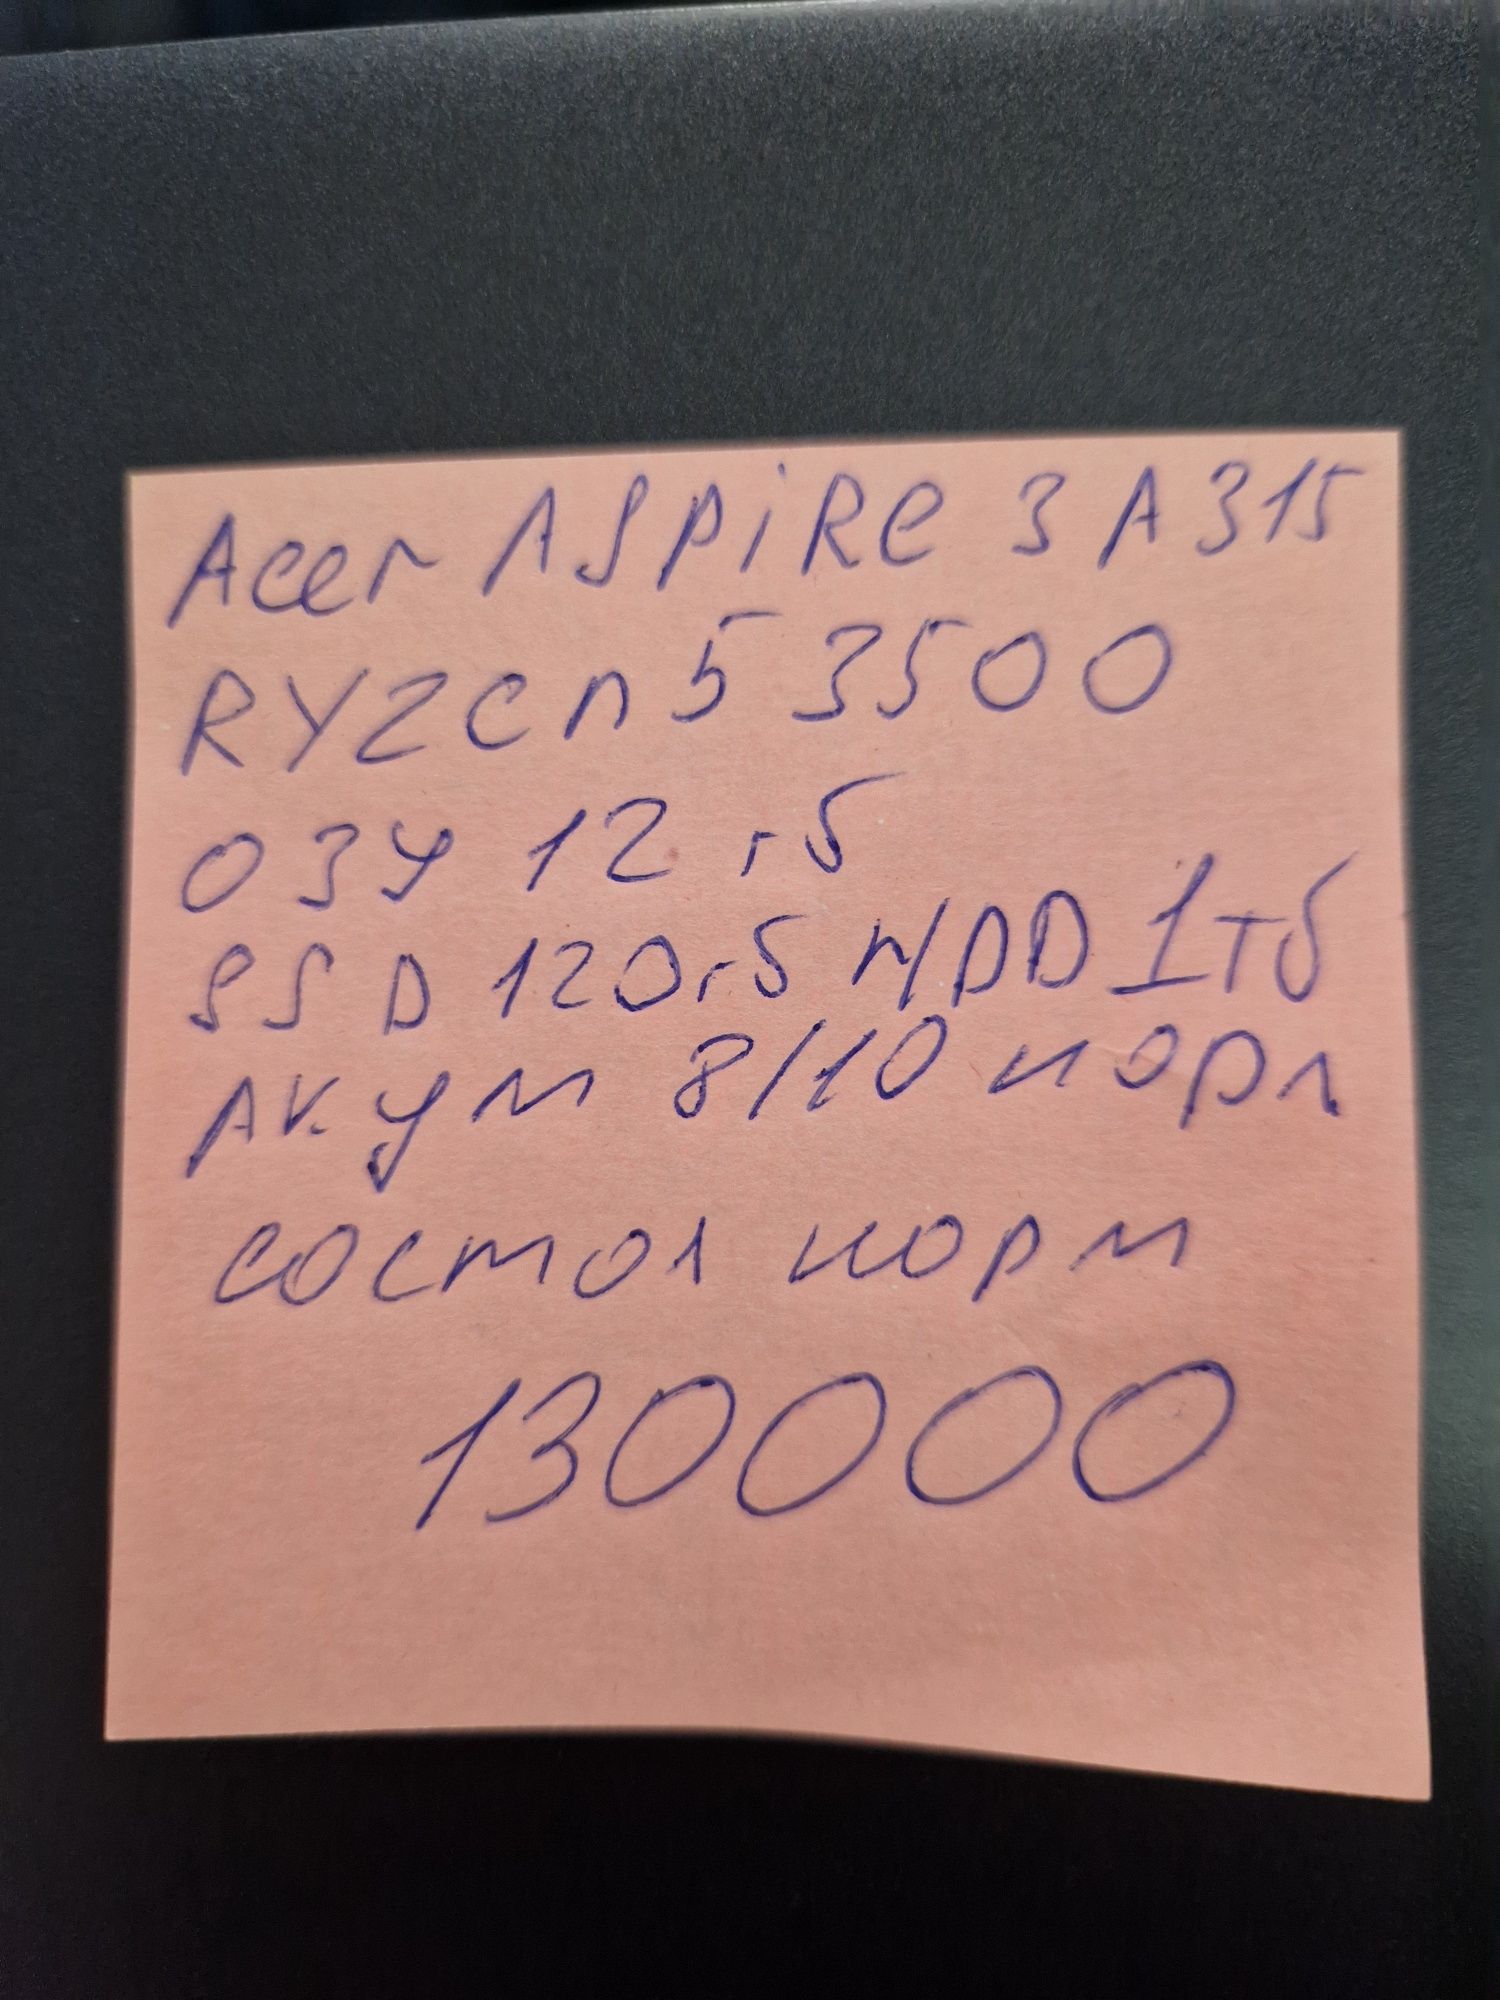 Acer ASpiRe 3 A315
RYZen 5 3500
ОЗУ 12 гб
SSD 120гб HDD 1тб
Акум 8/10 норм
состоя норм
130000